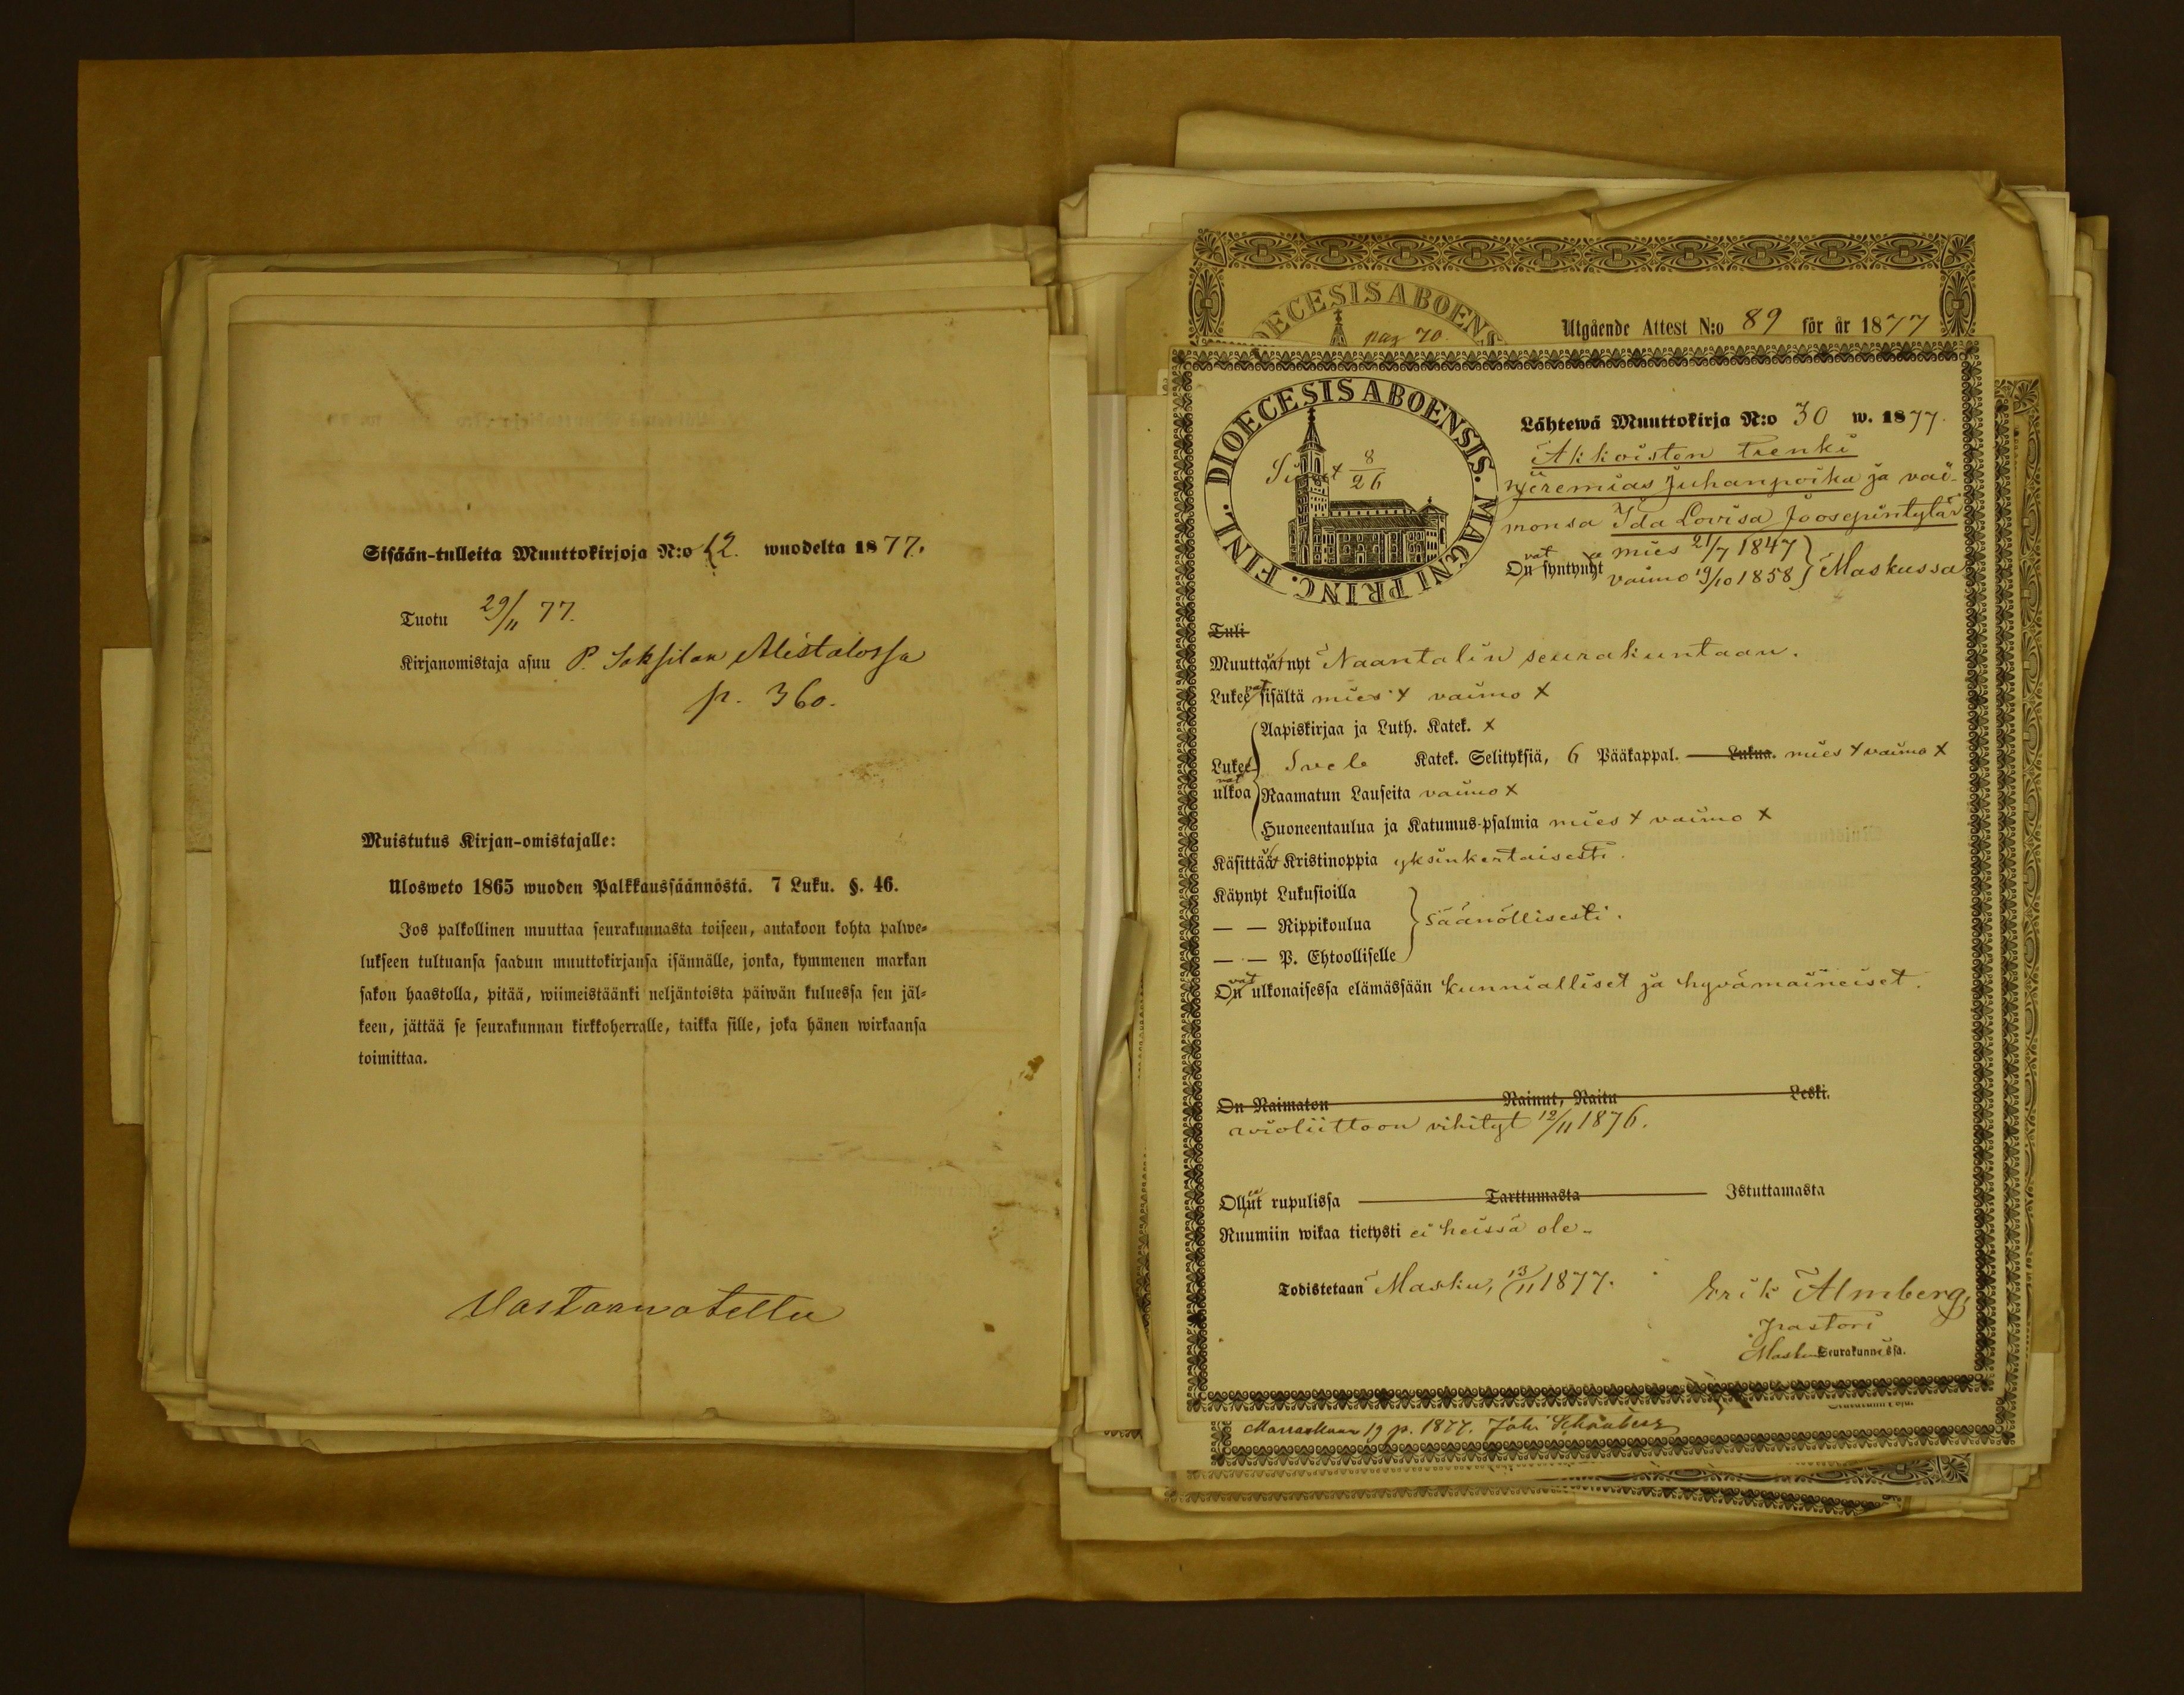 Sisään-tulleita Muuttokirjoja N:o 12. wuodelta 1877.
Tuotu 29/11 77.
Kirjanomistaja asuu P. Saksilan Alistalossa
p. 360.
Muistutus Kirjan-omistajalle:
Ulosweto 1865 wuoden Palkkaussäännöstä. 7 Luku. §. 46.
Jos palkollinen muuttaa seurakunnasta toiseen, antakoon kohta palwe-
lukseen tultuansa saadun muuttokirjansa isännälle, jonka, kymmenen markan
sakon haastolla, pitää, wiimeistäänki neljäntoista päiwän kuluessa sen jäl-
keen, jättää se seurakunnan kirkkoherralle, taikka sille, joka hänen wirkaansa
toimittaa.
Vastaanotettu
DIOECESIS ABOENS
pag 70.
Utgående Attest N:o 89 för år 1877
DIOECESIS ABOENSIS. MAGNI PRINC. FINL.
8/26
Lähtewä Muuttokirja N:o 30 w. 1877.
Akkoisten trenki
Jeremias Juhanpoika ja vai-
monsa Ida Lovisa Joosepintytär
On vat syntynyt mies 21/7 1847
vaimo 19/10 1858 } Maskussa
Tuli
Muuttaat nyt Naantalin seurakuntaan.
Lukee vat sisältä mies x vaimo x
Aapiskirjaa ja Luth. Katek. x
Lukee vat ulkoa Sveb Katek. Selityksiä, 6 Pääkappal. Lukua. mies x vaimo x
Raamatun Lauseita vaimo x
Huoneentaulua ja Katumus-psalmia mies x vaimo x
Käsittäät Kristinoppia yksinkertaisesti.
Käynyt Lukusioilla
— — Rippikoulua } säänöllisesti.
— — P. Ehtoolliselle
On vat ulkonaisessa elämässään kunnialliset ja hyvämaineiset.
On Naimaton Nainut, Naitu Leski.
avioliittoon vihityt 12/11 1876.
Ollut rupulissa Tarttumasta Istuttamasta
Ruumiin wikaa tietysti ei heissä ole.
Todistetaan Masku, 13/11 1877. Erik Almberg,
pastori
Maskun Seurakunnassa.
Marraskuun 19 p. 1877. Joh.